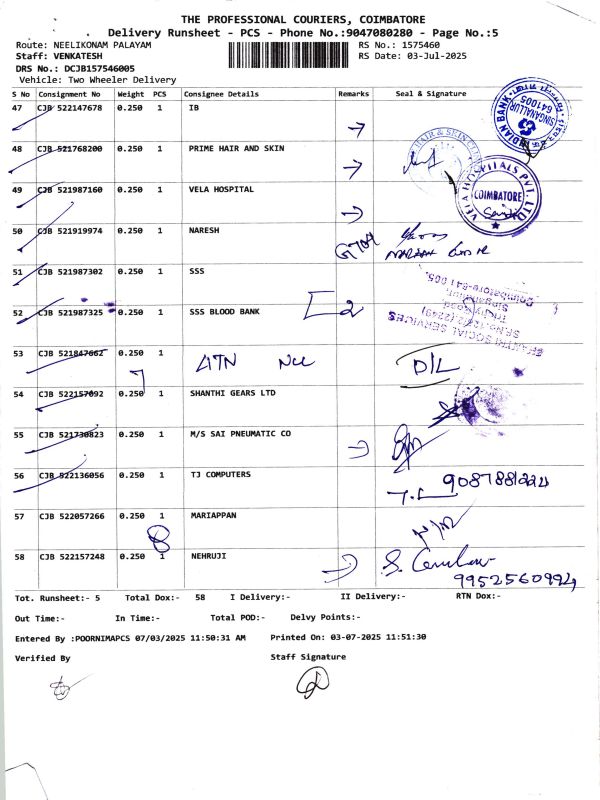 THE PROFESSIONAL COURIERS, COIMBATORE
Delivery Runsheet - PCS - Phone No.:9047080280 - Page No.:5
Route: NEELIKONAM PALAYAM
RS No.: 1575460
Staff: VENKATESH
RS Date: 03-Jul-2025
DRS No.: DCJB157546005
Vehicle: Two Wheeler Delivery
S No Consignment No Weight PCS Consignee Details Remarks Seal & Signature
47 CJB 522147678 0.250 1 IB
INDIAN BANK SINGANALLUR 641005
48 CJB 521768200 0.250 1 PRIME HAIR AND SKIN
HAIR & SKIN
49 CJB 521987160 0.250 1 VELA HOSPITAL
VELA HOSPITALS PVT. LTD. COIMBATORE
50 CJB 521919974 0.250 1 NARESH
51 CJB 521987302 0.250 1 SSS
52 CJB 521987325 0.250 1 SSS BLOOD BANK
2
SHANTHI SOCIAL SERVICES
Coimbatore-641 005.
53 CJB 521847662 0.250 1
D/L
54 CJB 522157092 0.250 1 SHANTHI GEARS LTD
55 CJB 521730823 0.250 1 M/S SAI PNEUMATIC CO
56 CJB 522136056 0.250 1 TJ COMPUTERS
9087881224
57 CJB 522057266 0.250 1 MARIAPPAN
8
58 CJB 522157248 0.250 1 NEHRUJI
9952560994
Tot. Runsheet:- 5 Total Dox:- 58 I Delivery:- II Delivery:- RTN Dox:-
Out Time:- In Time:- Total POD:- Delvy Points:-
Entered By :POORNIMAPCS 07/03/2025 11:50:31 AM Printed On: 03-07-2025 11:51:30
Verified By Staff Signature